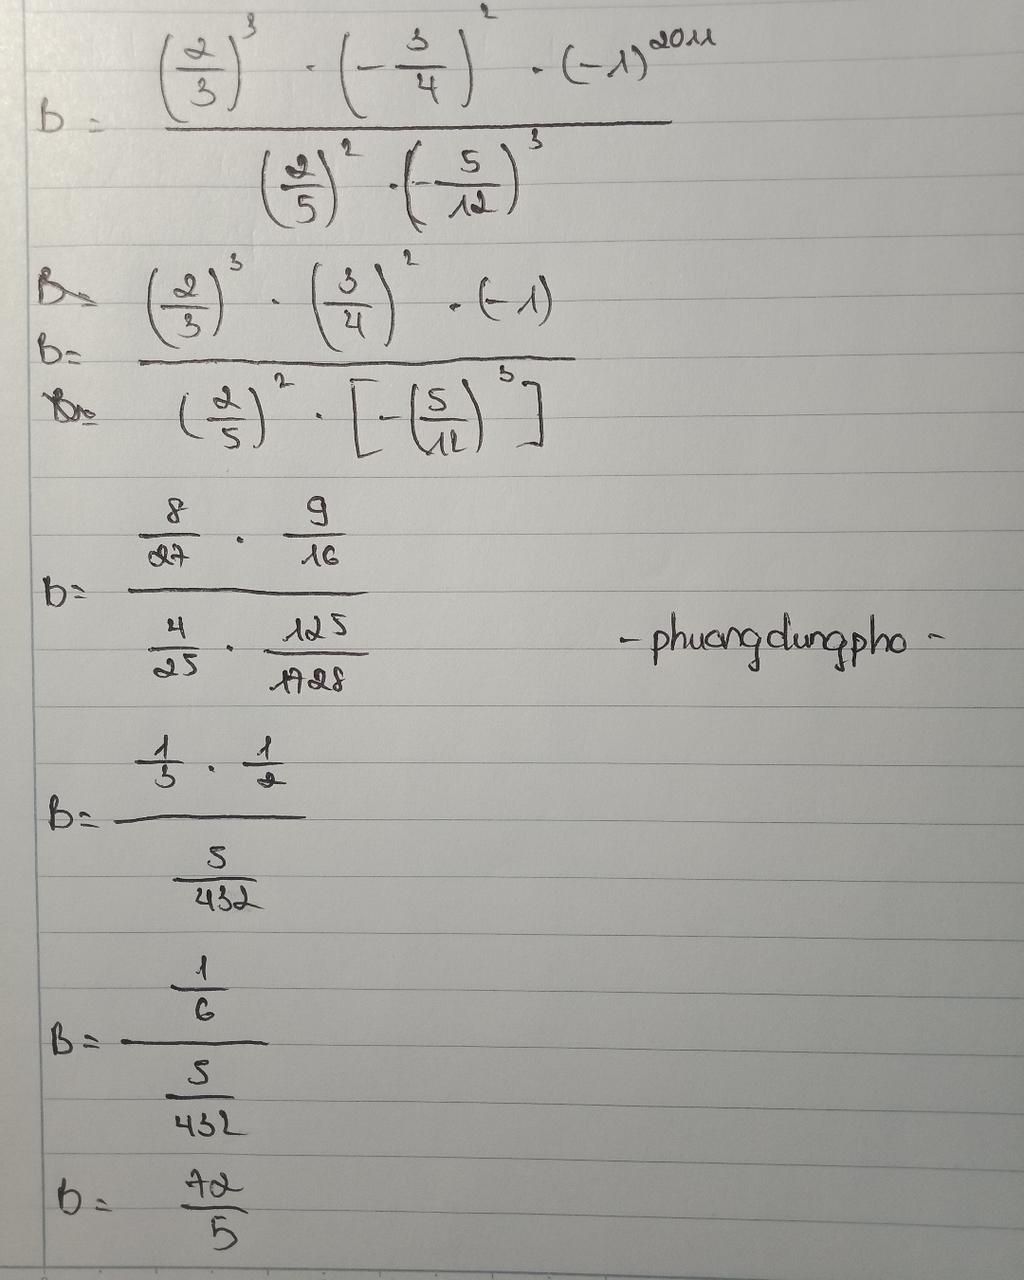 B = \frac{\left(\frac{2}{3}\right)^3 \cdot \left(-\frac{3}{4}\right)^2 \cdot (-1)^{2011}}{\left(\frac{2}{5}\right)^2 \cdot \left(-\frac{5}{12}\right)^3}
B = \frac{\left(\frac{2}{3}\right)^3 \cdot \left(\frac{3}{4}\right)^2 \cdot (-1)}{\left(\frac{2}{5}\right)^2 \cdot \left[-\left(\frac{5}{12}\right)^3\right]}
B = \frac{\frac{8}{27} \cdot \frac{9}{16}}{\frac{4}{25} \cdot \frac{125}{1728}}
- phuongdungpho -
B = \frac{\frac{1}{3} \cdot \frac{1}{2}}{\frac{5}{432}}
B = \frac{\frac{1}{6}}{\frac{5}{432}}
B = \frac{72}{5}